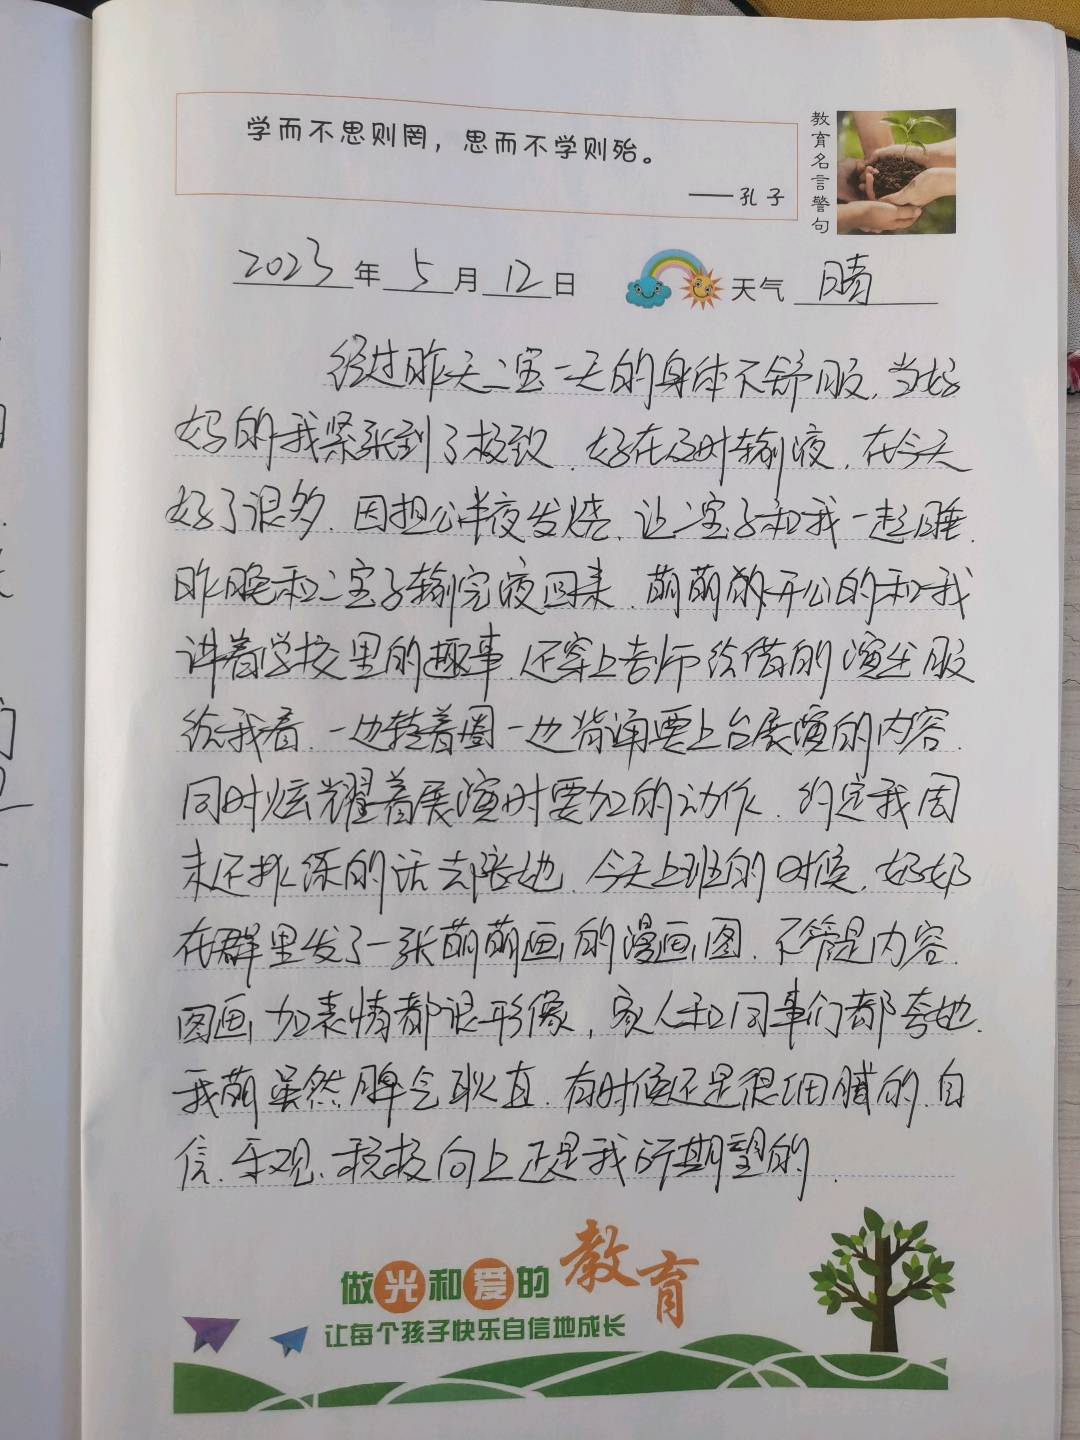 学而不思则罔，思而不学则殆。
——孔子
教育名言警句
2023年5月12日 天气 晴
经过昨天二宝一天的身体不舒服,当妈
妈的我紧张到了极致.好在及时输液.在今天
好了很多.因担心半夜发烧.让二宝子和我一起睡.
昨晚和二宝子输完液回来.萌萌开心的和我
讲着学校里的趣事.还穿上老师给借的演出服
给我看.一边转着圈一边背诵要上台展演的内容.
同时炫耀着展演时要加的动作.约定我周
末还排练的话去陪她.今天上班的时候,奶奶
在群里发了一张萌萌画的漫画图.不管是内容.
图画加表情都很形像,家人和同事们都夸她.
我萌虽然脾气耿直.有时候还是很细腻的.自
信、乐观、积极向上还是我所期望的.
做光和爱的教育
让每个孩子快乐自信地成长